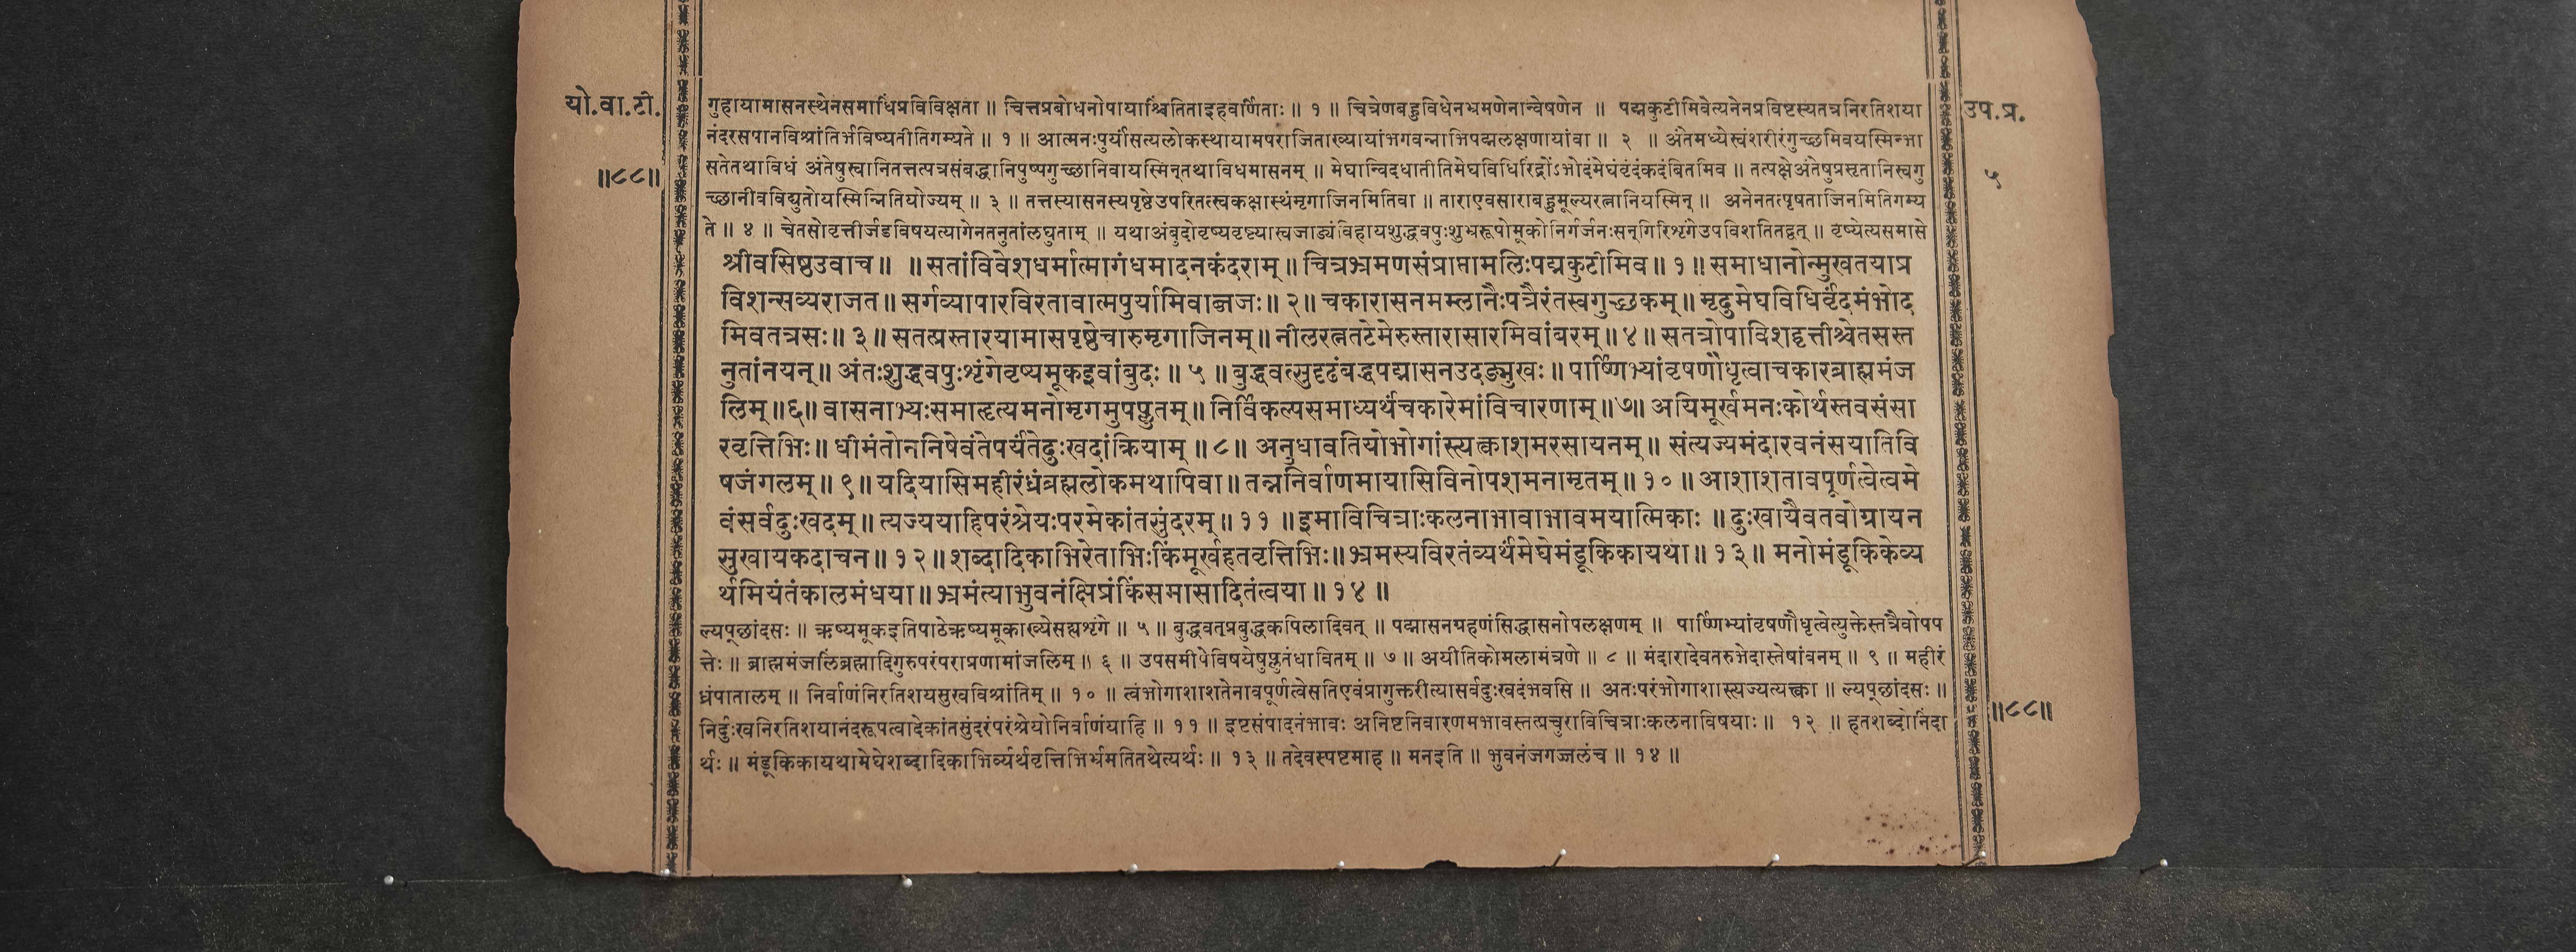 यो.वा.टी.
॥८८॥
गुहायामासनस्थेनसमाधिप्रविविक्षता ॥ चित्तप्रबोधनोपायाश्चिंतिताइहवर्णिताः ॥ १ ॥ चित्रेणबहुविधेनभ्रमणेनान्वेषणेन ॥ पद्मकुटीमिवेत्यनेनप्रविष्टस्यतत्रनिरतिशया
नंदरसपानविश्रांतिर्भविष्यतीतिगम्यते ॥ १ ॥ आत्मनःपुर्यांसत्यलोकस्थायामपराजिताख्यायांभगवन्नाभिपद्मलक्षणायांवा ॥ २ ॥ अंतेमध्येस्वंशरीरंगुच्छमिवयस्मिन्भा
सतेतथाविधं अंतेषुस्वानितत्तत्पत्रसंबद्धानिपुष्पगुच्छानिवायस्मिन्‌तथाविधमासनम् ॥ मेघान्विदधातीतिमेघविधिरिंद्रोंऽभोदंमेघंवृंदंकदंबितमिव ॥ तत्पक्षेअंतेषुप्रसृतानिस्वगु
च्छानीवविद्युतोयस्मिन्नितियोज्यम् ॥ ३ ॥ तत्तस्यासनस्यपृष्ठेउपरितत्स्वकक्षास्थंमृगाजिनमितिवा ॥ ताराएवसाराबहुमूल्यरत्नानियस्मिन् ॥ अनेनतत्पृषताजिनमितिगम्य
ते ॥ ४ ॥ चेतसोवृत्तीर्जडविषयत्यागेनतनुतांलघुताम् ॥ यथाअंबुदोवृष्यवृष्ट्यास्वजाड्यंविहायशुद्धवपुःशुभ्ररूपोमूकोनिर्गर्जनःसन्‌गिरिशृंगेउपविशतितद्वत् ॥ वृष्येत्यसमासे
श्रीवसिष्ठउवाच ॥ ॥ सतांविवेशधर्मात्मागंधमादनकंदराम् ॥ चित्रभ्रमणसंप्राप्तामलिःपद्मकुटीमिव ॥ १ ॥ समाधानोन्मुखतयाप्र
विशन्सव्यराजत ॥ सर्गव्यापारविरतावात्मपुर्यामिवाब्जजः ॥ २ ॥ चकारासनमम्लानैःपत्रैरंतस्वगुच्छकम् ॥ मृदुमेघविधिर्वृंदमंभोद
मिवतत्रसः ॥ ३ ॥ सतत्प्रस्तारयामासपृष्ठेचारुमृगाजिनम् ॥ नीलरत्नतटेमेरुस्तारासारमिवांबरम् ॥ ४ ॥ सतत्रोपाविशद्वृत्तीश्चेतसस्त
नुतांनयन् ॥ अंतःशुद्धवपुःशृंगेवृष्यमूकइवांबुदः ॥ ५ ॥ बुद्धवत्सुदृढंबद्धपद्मासनउदङ्मुखः ॥ पार्ष्णिभ्यांवृषणौधृत्वाचकारब्राह्ममंज
लिम् ॥ ६ ॥ वासनाभ्यःसमाहृत्यमनोमृगमुपप्लुतम् ॥ निर्विकल्पसमाध्यर्थंचकारेमांविचारणाम् ॥ ७ ॥ अयिमूर्खमनःकोर्थस्तवसंसा
रवृत्तिभिः ॥ धीमंतोननिषेवंतेपर्यंतेदुःखदांक्रियाम् ॥ ८ ॥ अनुधावतियोभोगांस्त्यक्त्वाशमरसायनम् ॥ संत्यज्यमंदारवनंसयातिवि
षजंगलम् ॥ ९ ॥ यदियासिमहीरंध्रंब्रह्मलोकमथापिवा ॥ तन्ननिर्वाणमायासिविनोपशमनामृतम् ॥ १० ॥ आशाशतावपूर्णत्वेत्वमे
वंसर्वदुःखदम् ॥ त्यज्ययाहिपरंश्रेयःपरमेकांतसुंदरम् ॥ ११ ॥ इमाविचित्राःकलनाभावाभावमयात्मिकाः ॥ दुःखायैवतवोग्रायन
सुखायकदाचन ॥ १२ ॥ शब्दादिकाभिरेताभिःकिंमूर्खहतवृत्तिभिः ॥ भ्रमस्यविरतंव्यर्थंमेघेमंडूकिकायथा ॥ १३ ॥ मनोमंडूकिकेव्य
र्थमियंतंकालमंधया ॥ भ्रमंत्याभुवनंक्षिप्रंकिंसमासादितंत्वया ॥ १४ ॥
ल्यप्‌छांदसः ॥ ऋष्यमूकइतिपाठेऋष्यमूकाख्येसह्यशृंगे ॥ ५ ॥ बुद्धवत्प्रबुद्धकपिलादिवत् ॥ पद्मासनग्रहणंसिद्धासनोपलक्षणम् ॥ पार्ष्णिभ्यांवृषणौधृत्वेत्युक्तेस्तत्रैवोपप
त्तेः ॥ ब्राह्ममंजलिंब्रह्मादिगुरुपरंपराप्रणामांजलिम् ॥ ६ ॥ उपसमीपेविषयेषुप्लुतंधावितम् ॥ ७ ॥ अयीतिकोमलामंत्रणे ॥ ८ ॥ मंदारादेवतरुभेदास्तेषांवनम् ॥ ९ ॥ महीरं
ध्रंपातालम् ॥ निर्वाणंनिरतिशयसुखविश्रांतिम् ॥ १० ॥ त्वंभोगाशाशतेनावपूर्णत्वेसतिएवंप्रागुक्तरीत्यासर्वदुःखदंभवसि ॥ अतःपरंभोगाशास्त्यज्यत्यक्त्वा ॥ ल्यप्‌छांदसः ॥
निर्दुःखनिरतिशयानंदरूपत्वादेकांतसुंदरंपरंश्रेयोनिर्वाणंयाहि ॥ ११ ॥ इष्टसंपादनंभावः अनिष्टनिवारणमभावस्तत्प्रचुराविचित्राःकलनाविषयाः ॥ १२ ॥ हतशब्दोनिंदा
र्थः ॥ मंडूकिकायथामेघेशब्दादिकाभिर्व्यर्थवृत्तिभिर्भ्रमतितथेत्यर्थः ॥ १३ ॥ तदेवस्पष्टमाह ॥ मनइति ॥ भुवनंजगज्जलंच ॥ १४ ॥
उप.प्र.
५
॥८८॥